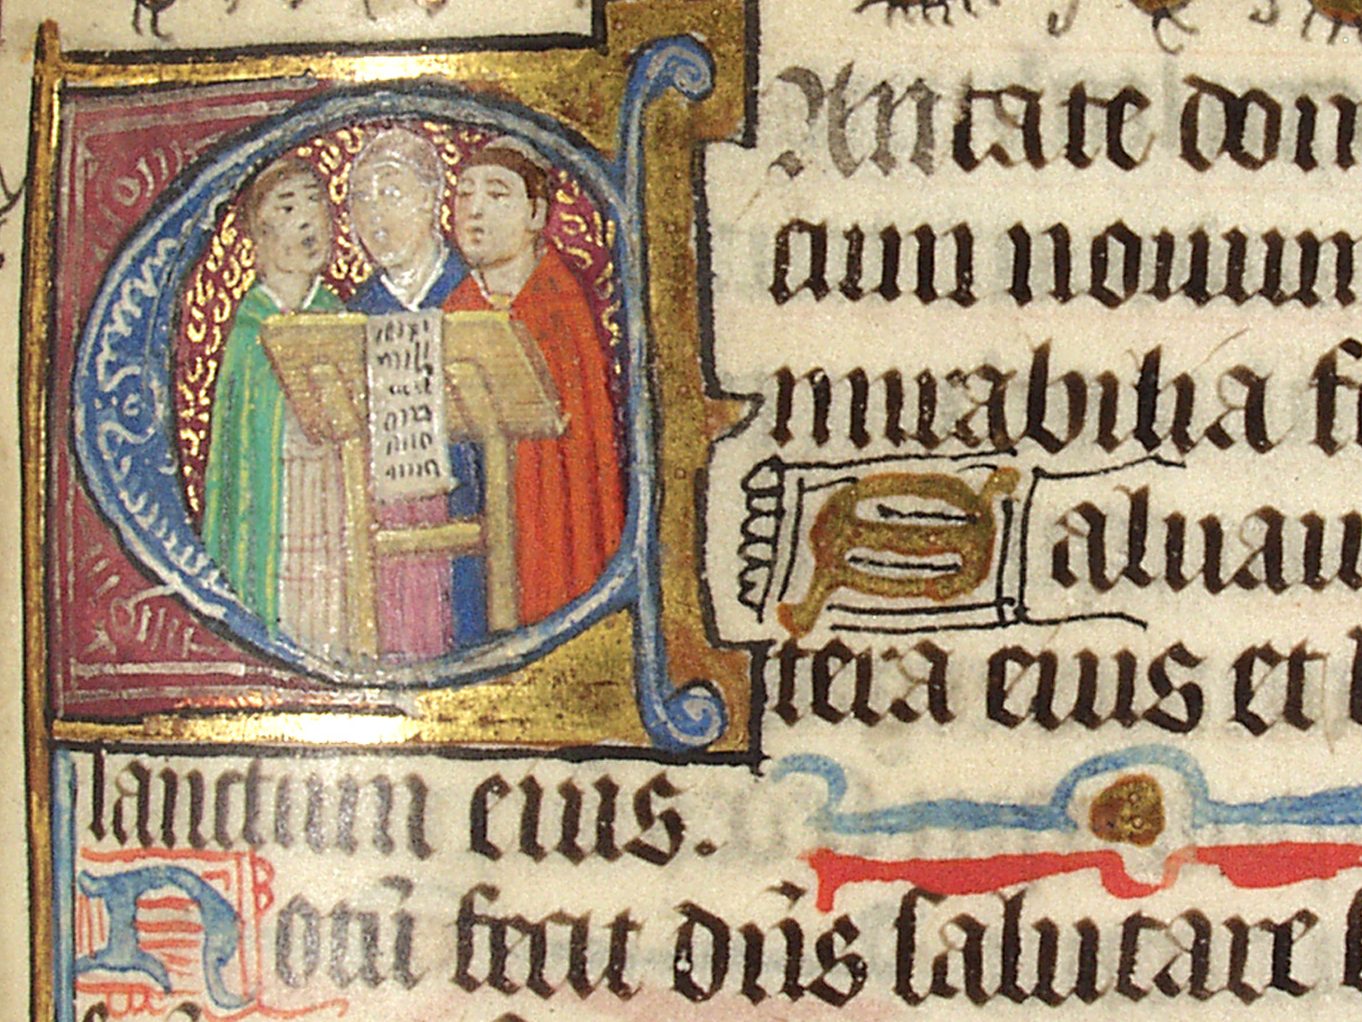 Antate dom
cum nouum
mirabilia f
Saluaui
tera eius et b
sanctum eius.
Notū fecit dn̄s salutare s